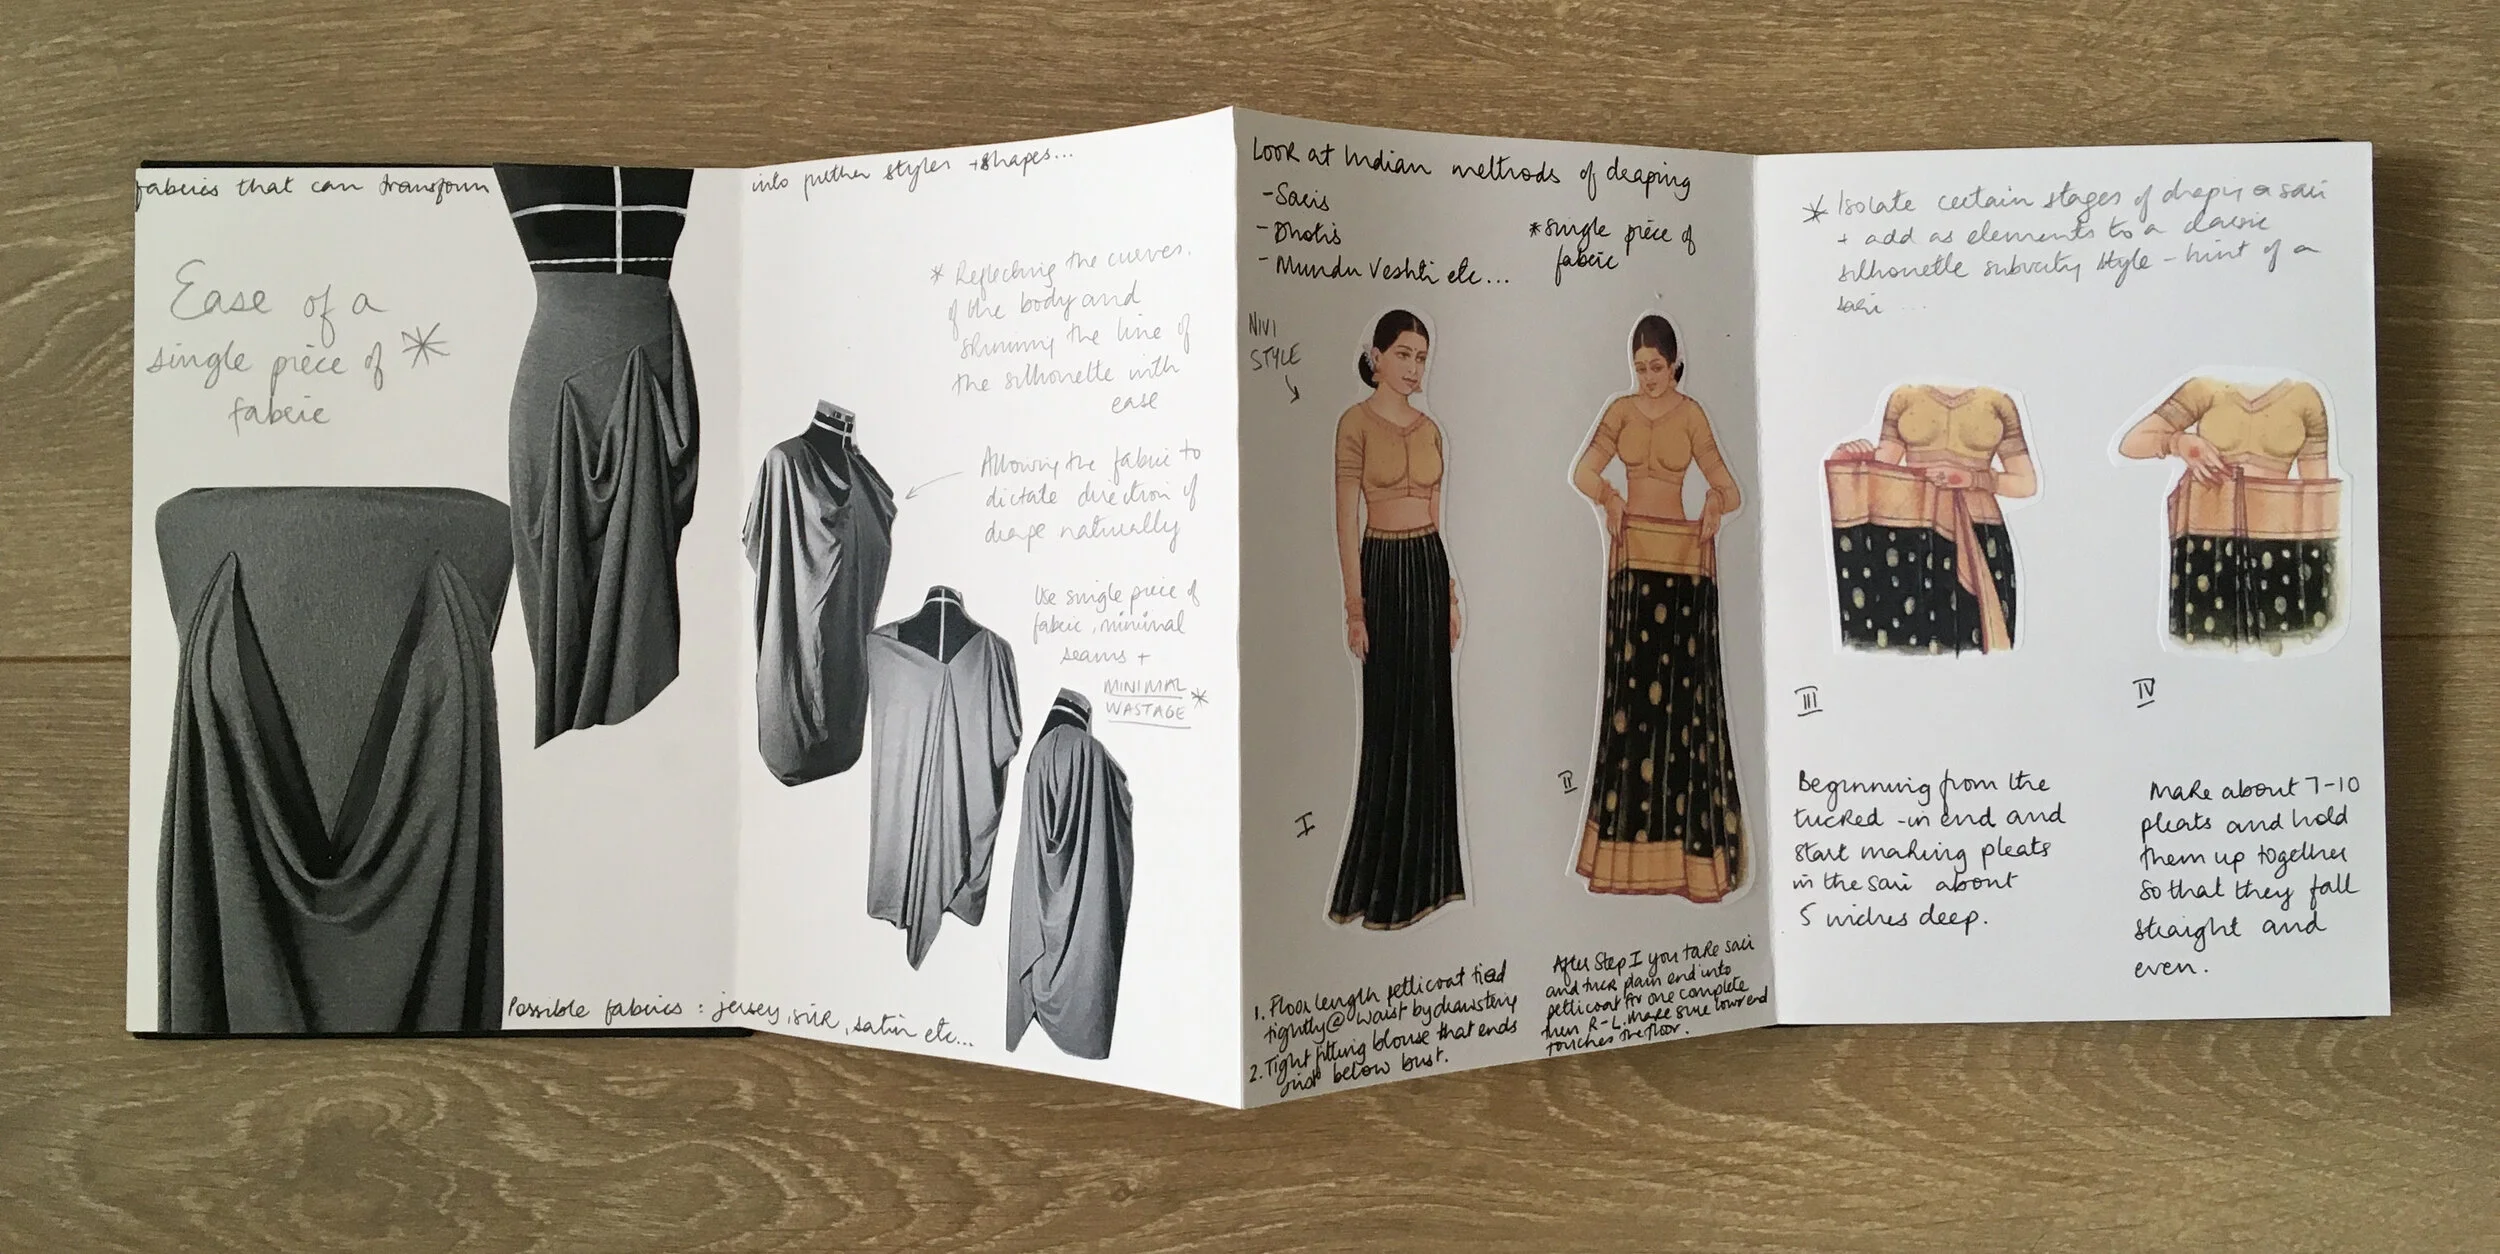 fabrics that can transform
Ease of a
single piece of *
fabric
into further styles + shapes...
* Reflecting the curves
of the body and
skimming the line of
the silhouette with
ease
Allowing the fabric to
dictate direction of
drape naturally
Use single piece of
fabric, minimal
seams +
MINIMAL
WASTAGE *
Possible fabrics : jersey, silk, satin etc...
Look at Indian methods of draping
- Saris
- Dhotis
- Mundu Veshti etc...
* single piece of
fabric
NIVI
STYLE
I
1. Floor length petticoat tied
tightly @ waist by drawstring
2. Tight fitting blouse that ends
just below bust.
II
After Step I you take sari
and tuck plain end into
petticoat for one complete
turn R-L. Make sure lower end
touches the floor.
* Isolate certain stages of draping a sari
+ add as elements to a classic
silhouette style - hint of a
sari ...
III
Beginning from the
tucked-in end and
start making pleats
in the sari about
5 inches deep.
IV
Make about 7-10
pleats and hold
them up together
so that they fall
straight and
even.